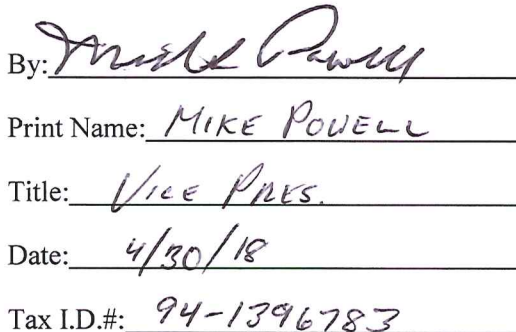 By: Mike Powell
Print Name: MIKE POWELL
Title: VICE PRES.
Date: 4/30/18
Tax I.D.#: 94-1396783